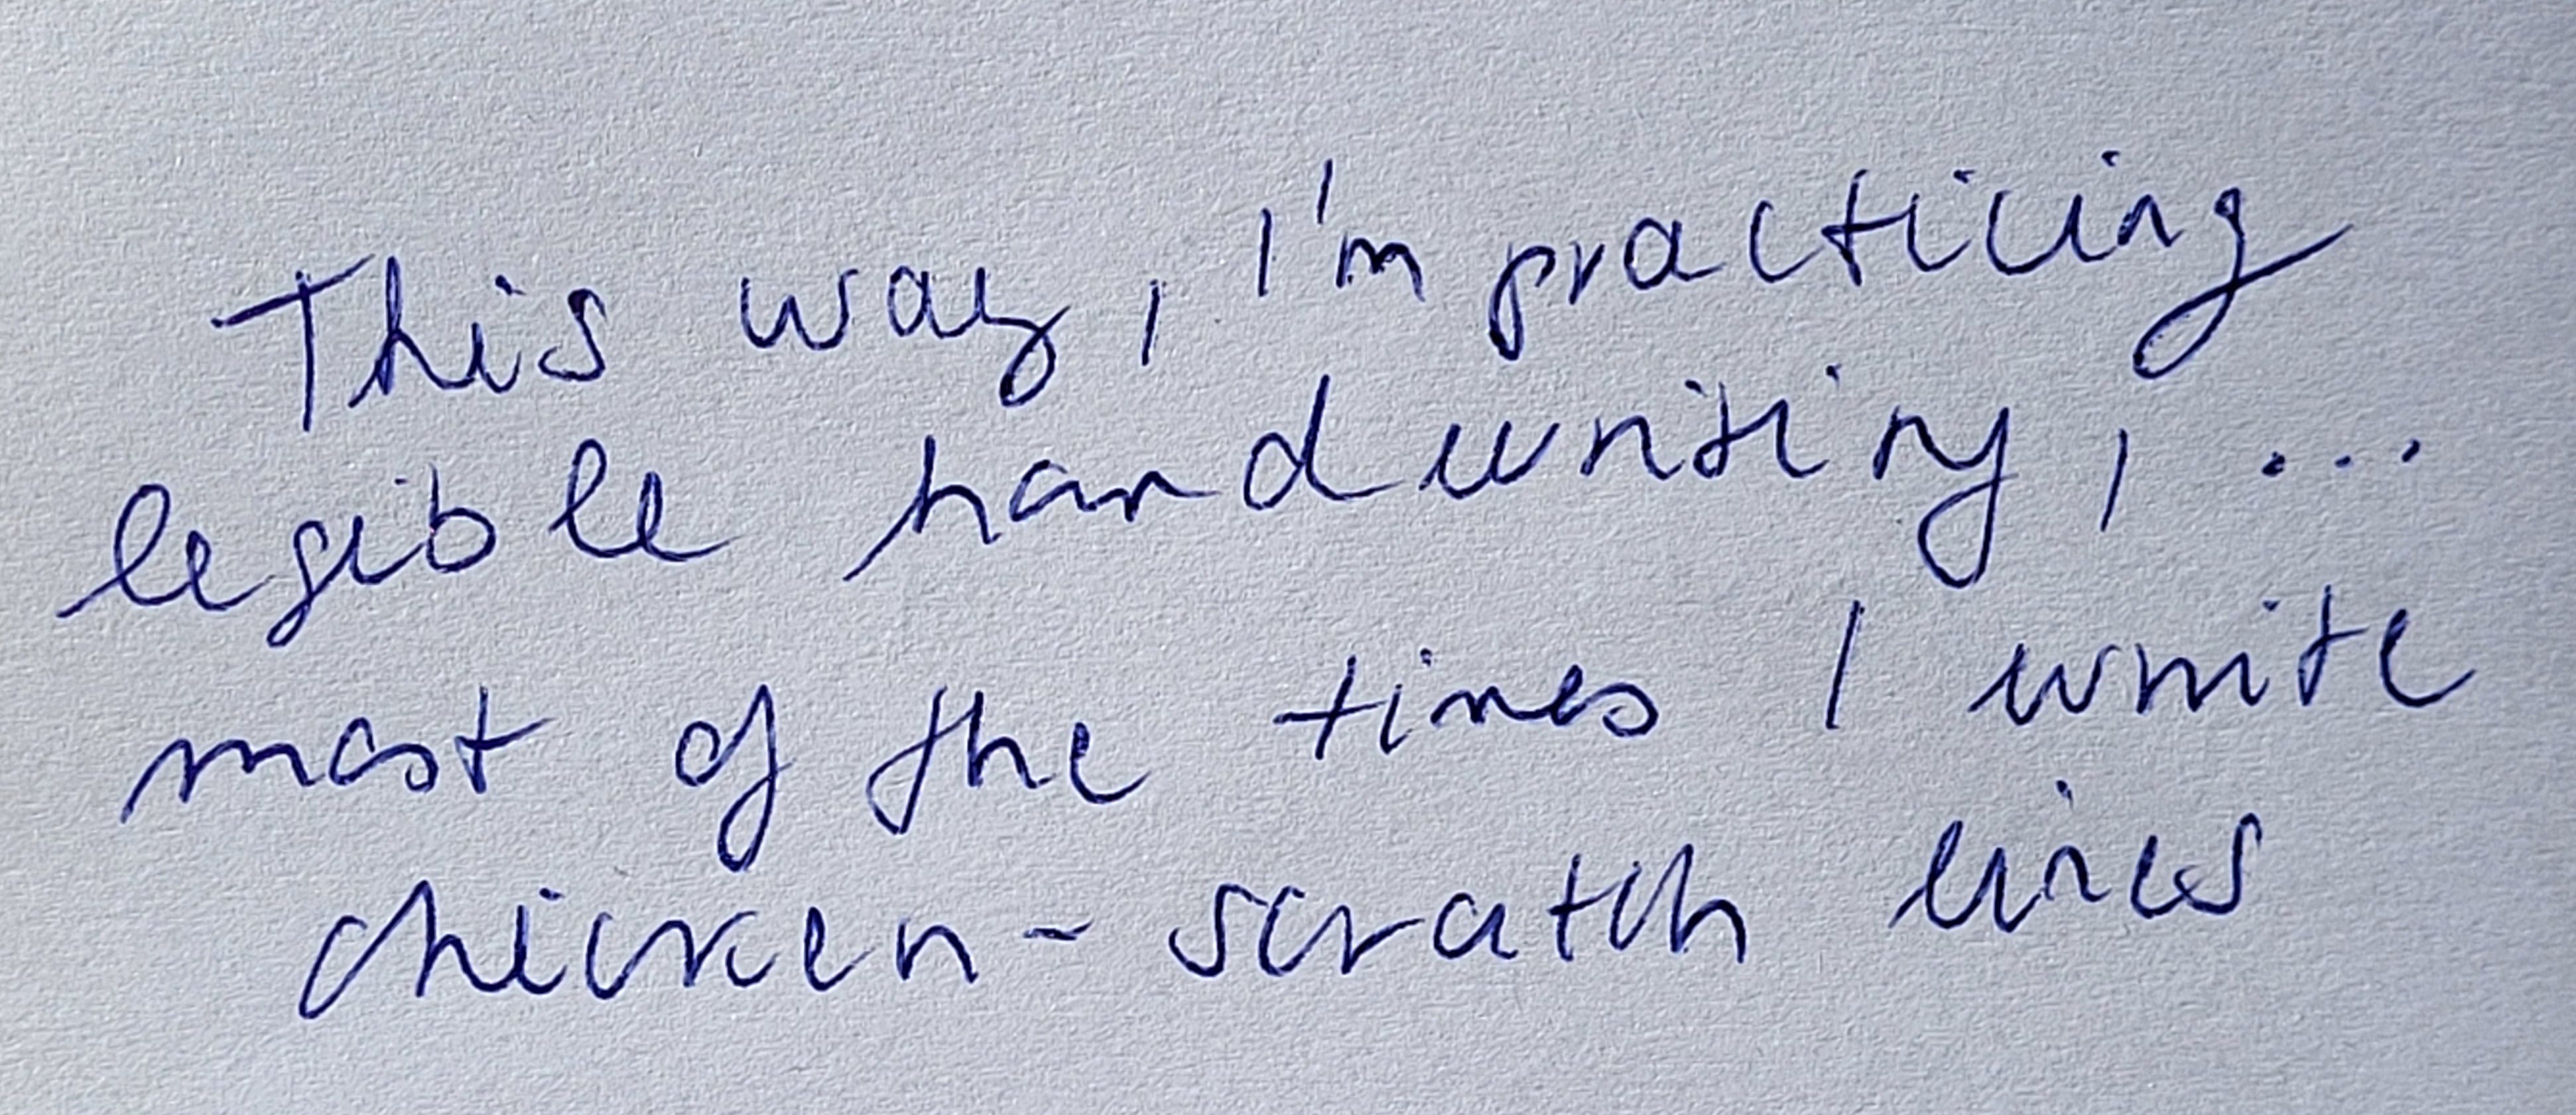 This way, I'm practicing
legible handwriting, ...
most of the times I write
chicken-scratch lines